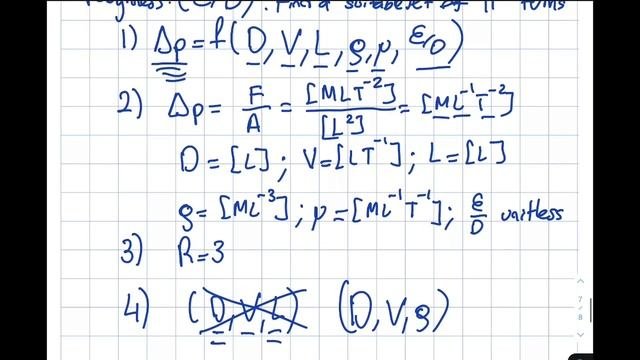 roughness (ε/D). Find a suitable set of π terms
1) Δp = f(D, V, L, ρ, μ, ε/D)
2) Δp = F/A = [MLT⁻²]/[L²] = [ML⁻¹T⁻²]
D = [L]; V = [LT⁻¹]; L = [L]
ρ = [ML⁻³]; μ = [ML⁻¹T⁻¹]; ε/D unitless
3) R=3
4) (D, V, L) (D, V, ρ)
7
8